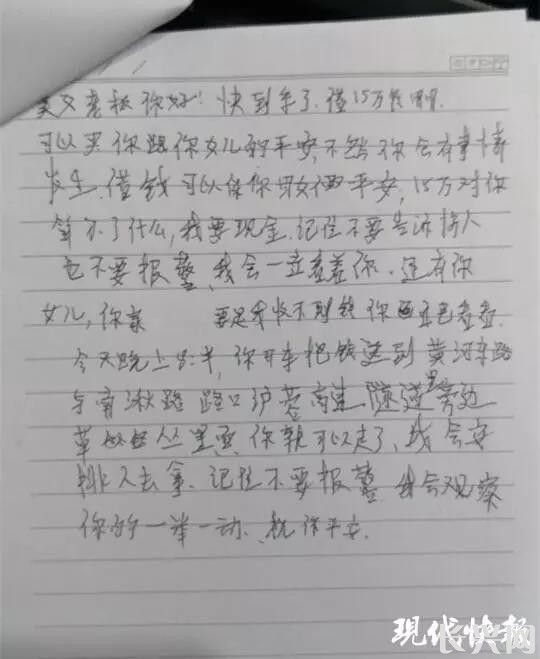 美女老板你好！快到年了，借15万能
可以买你跟你女儿的平安，不然你会有事情
发生，借钱可以保你母女俩平安，15万对你
算不了什么，我要现金，记住不要告诉
也不要报警，我会一直盯着你，还有你
女儿，你家 要是我收不到钱你
今天晚上 半，你开车把钱送到黄河东路
与南湫路路口沪蓉高速隧道旁边
草丛里面，你就可以走了，我会安
排人去拿，记住不要报警 我会观察
你的一举一动，祝你平安.
现代快报
长安网